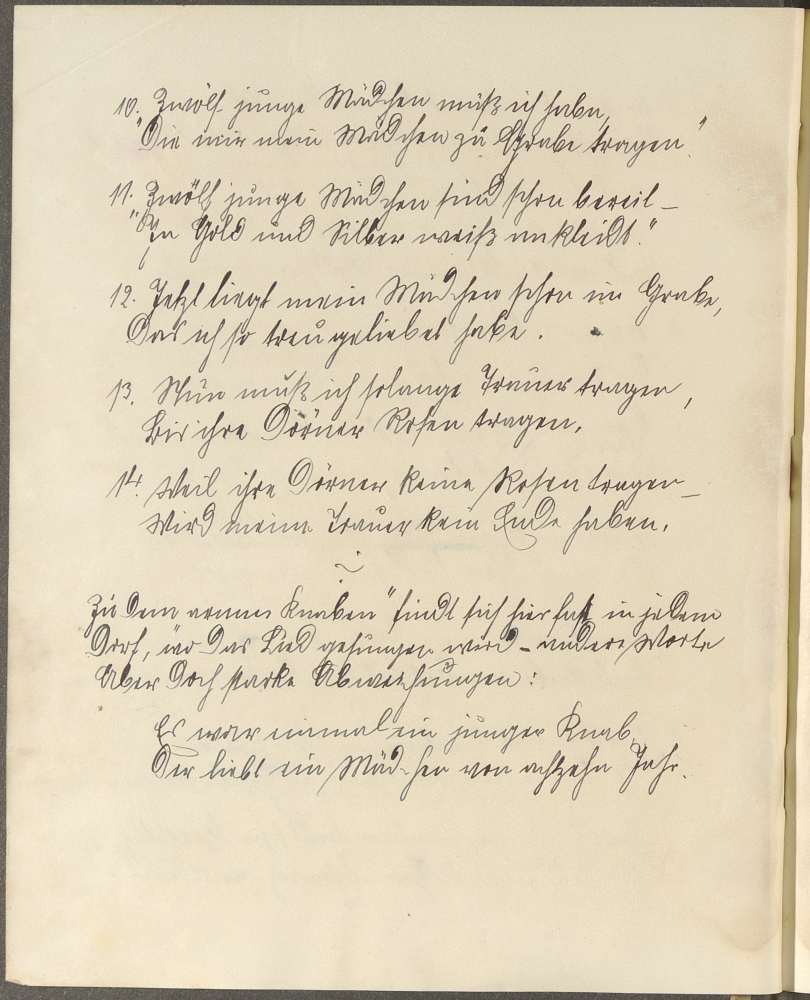 10. Zwölf junge Mädchen muß ich haben,
"Die mir mein Mädchen zu Grabe tragen."
11. Zwölf junge Mädchen sind schon bereit –
"In Gold und Silber weiß ankleidt."
12. Jetzt liegt mein Mädchen schon im Grabe,
Das ich so treu geliebet habe.
13. Nun muß ich solange Trauer tragen,
Bis ihre Dörner Rosen tragen.
14. Weil ihre Dörner keine Rosen tragen –
Wird meine Trauer kein Ende haben.
Zu dem armen Knaben" findt sich hier fast in jedem
Dorf, wo das Lied gesungen wird – andere Worte
Aber doch starke Abweichungen:
Es war einmal ein junger Knab,
Der liebt ein Mädchen von achtzehn Jahr.